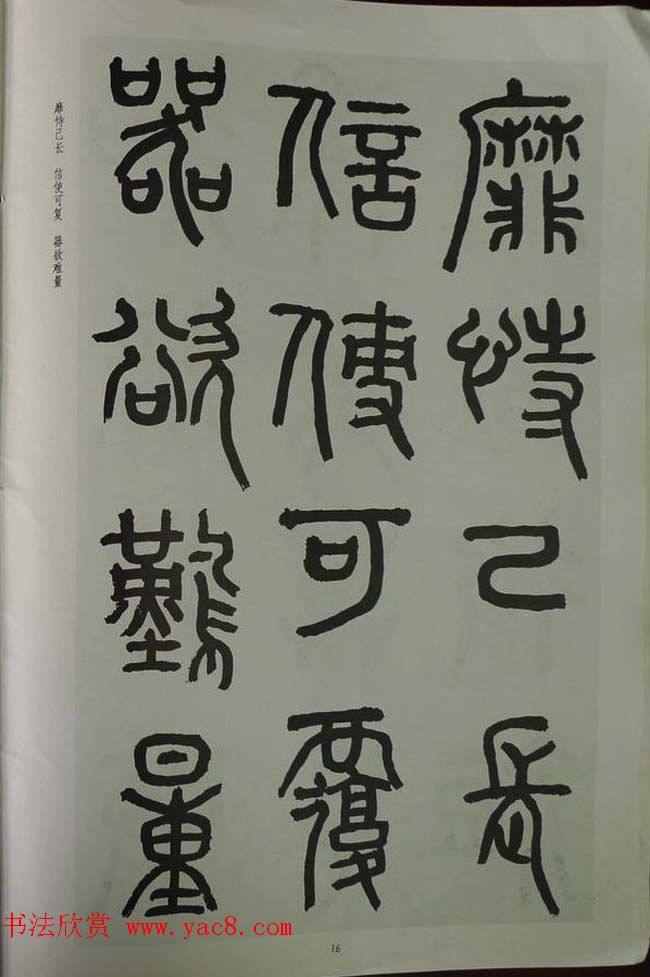 靡恃己長
信使可覆
器欲難量
靡恃己长 信使可复 器欲难量
16
书法欣赏 www.yac8.com